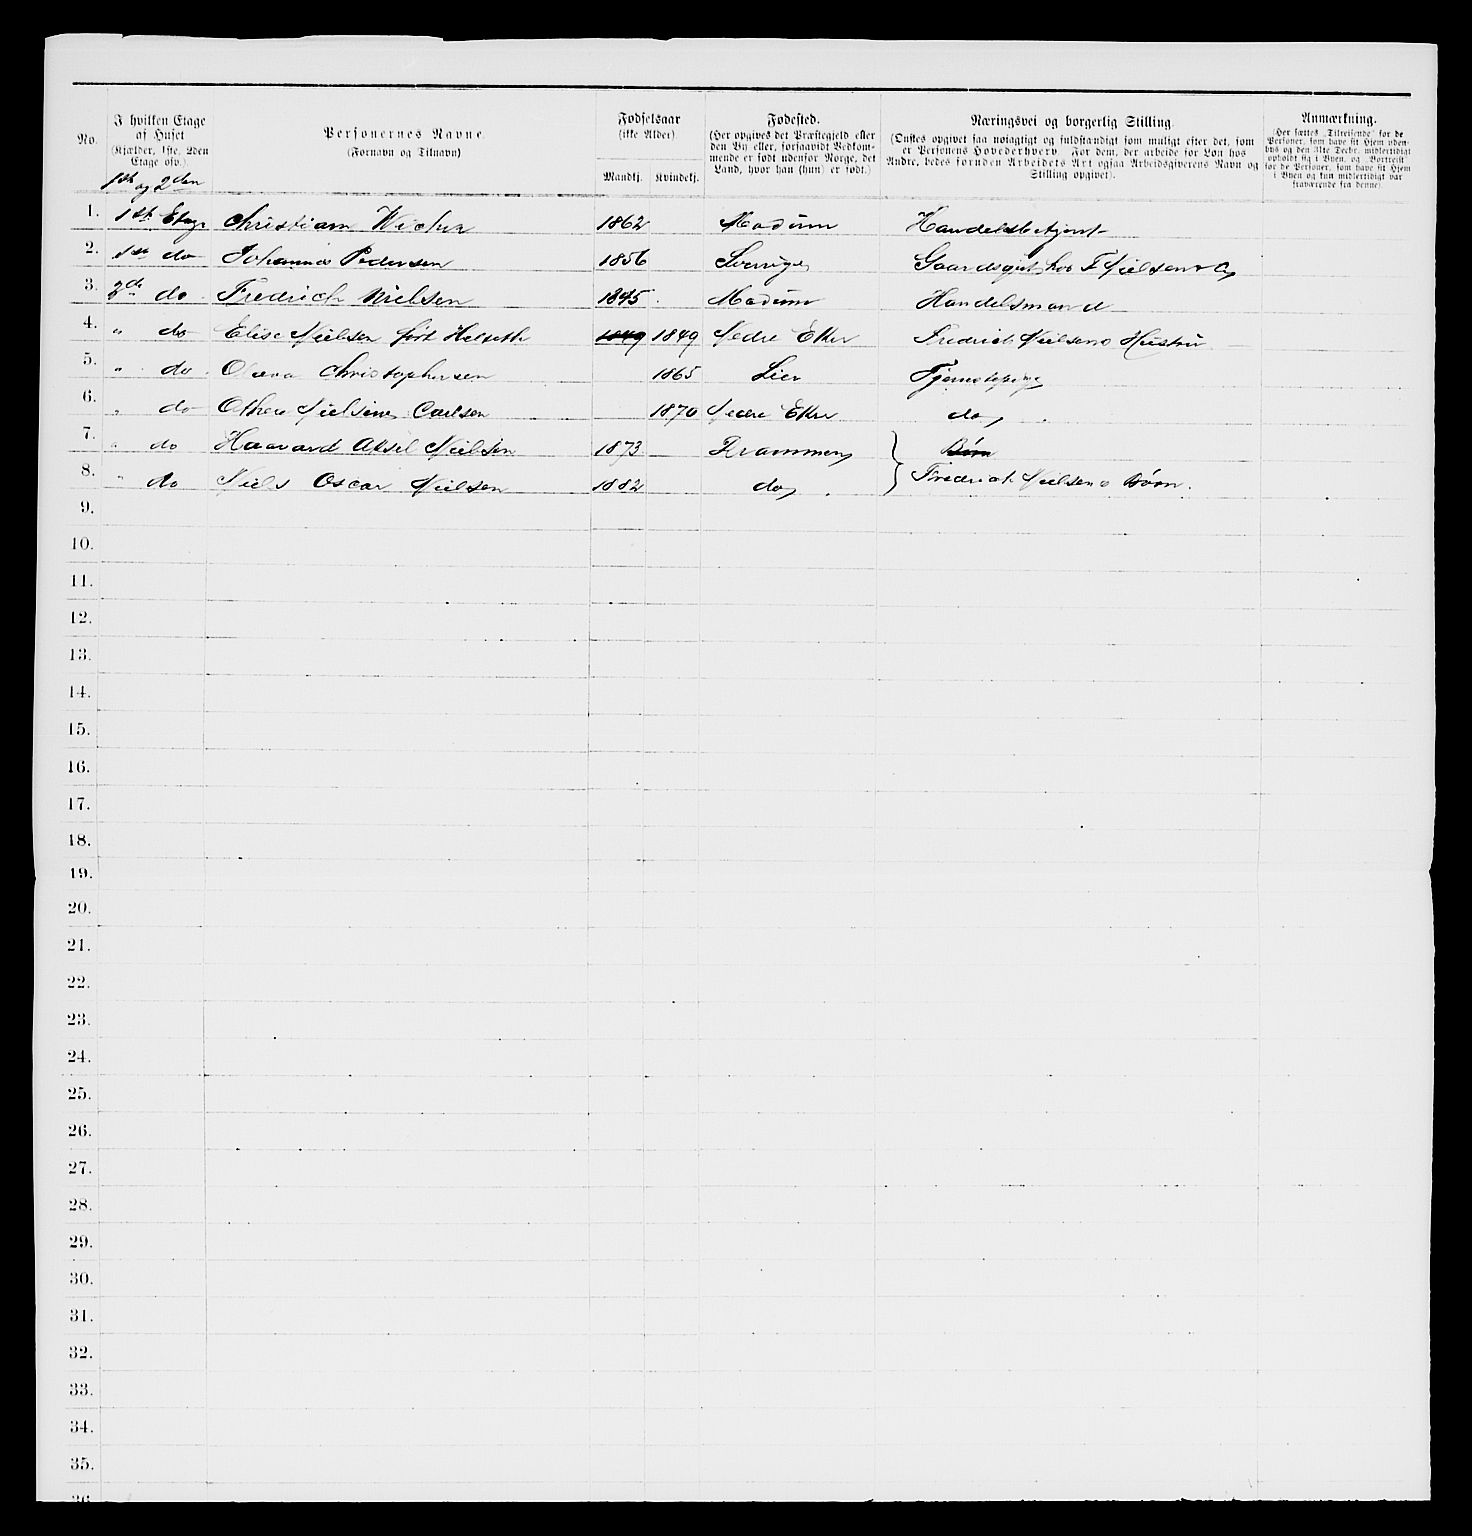 No.
I hvilken Etage af Huset (Kjælder, 1ste, 2den Etage osv.).
Personernes Navne. (Fornavn og Tilnavn)
Fødselsaar (ikke Alder)
Mandkj. Kvindekj.
Fødested. (Her opgives det Præstegjeld eller den By eller, forsaavidt Vedkommende er født udenfor Norge, det Land, hvor han (hun) er født.)
Næringsvei og borgerlig Stilling. (Ønskes opgivet saa nøiagtigt og fuldstændigt som muligt efter det, som er Personens Hovederhverv. For dem, der arbeide for Løn hos Andre, bedes foruden Arbeidets Art ogsaa Arbeidsgiverens Navn og Stilling opgivet).
Anmærkning. (Her sættes „Tilreisende" for de Personer, som have sit Hjem udenbys og den 31te Decbr. midlertidigt opholdt sig i Byen, og „Bortreist" for de Personer, som have sit Hjem i Byen og kun midlertidigt var fraværende fra denne).
1ste og 2den
1. 1ste Etage Christian 1862 Modum Handelsbetjent
2. 1ste do Johannes Pedersen 1856 Sverrige Gaardsgut hos F Nielsen & Co
3. 2de do Fredrich Nielsen 1845 Modum Handelsmand
4. " do Elise Nielsen født 1849 1849 Nedre Eker Fredrich Nielsens Hustru
5. " do Christophersen 1865 Lier Tjenestepige
6. " do Carlsen 1870 Nedre Eker do
7. " do Haavard Aksel Nielsen 1873 Drammen Børn
8. " do Niels Oscar Nielsen 1882 do Fredrich Nielsens Børn.
9.
10.
11.
12.
13.
14.
15.
16.
17.
18.
19.
20.
21.
22.
23.
24.
25.
26.
27.
28.
29.
30.
31.
32.
33.
34.
35.
36.